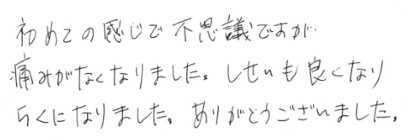 初めての感じで不思議ですが
痛みがなくなりました。しせいも良くなり
らくになりました。ありがとうございました。